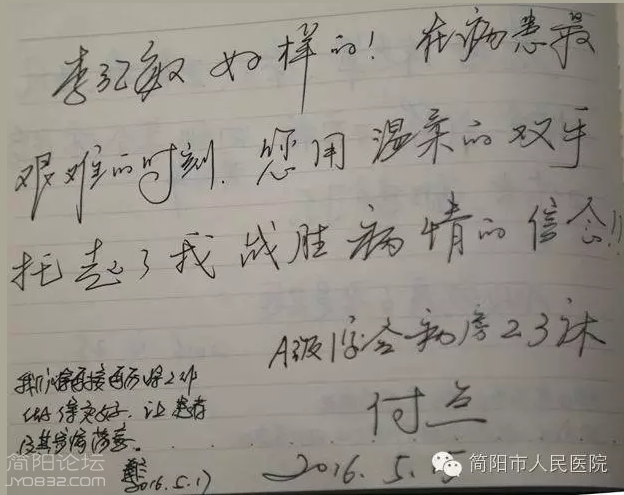 李红敏 好样的！在病患最
艰难的时刻.您用温柔的双手
托起了我战胜病情的信念!!
A级 病房23床
付点
2016.5.15
我们将再接再厉将工作
做得更好.让患者
及其家属满意。
2016.5.17
简阳论坛
JYOB832.com
简阳市人民医院